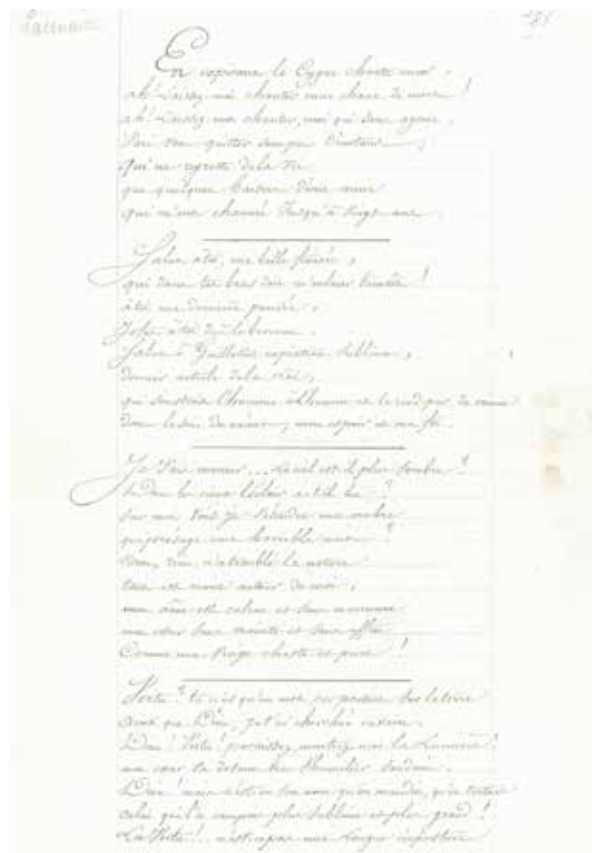 Lacenaire
En expirant le Cygne chante encor
ah! Laissez-moi chanter mon chant de mort!
ah! Laissez moi chanter, moi qui sans agonie,
Vais vous quitter dans peu d'instans,
Qui ne regrette de la vie
que quelques
qui m'ont charmé jusqu'à vingt ans
Salut à toi, ma belle fiancée,
qui dans tes bras vas m'enlacer bientôt!
à toi ma dernière pensée,
à toi
Salut ô Guillotine expiation sublime,
dernier article de la loi,
qui soustrais l'homme à l'homme et le rend pur de crime
dans le sein du néant, mon espoir et ma foi.
Je Vais mourir... le ciel est il plus sombre?
Dans les cieux l'éclair a-t-il lui?
Sur moi vois-je s'étendre une ombre
qui présage une horrible nuit?
Non, rien n'a troublé la nature
tout est autour de moi,
mon âme est calme et sans murmure
mon cœur sans crainte et sans effroi
Comme une Vierge chaste et pure!
Vertu! tu n'es qu'un mot, car partout sur la terre
ainsi que Dieu, je t'ai cherchée en vain.
Dieu! Vertu! paraissez, montrez moi la Lumière!
mon cœur va devant
Dieu! mais c'est
celui qui l'a conçu plus sublime et plus grand!
La Vertu!... n'est-ce pas une longue imposture